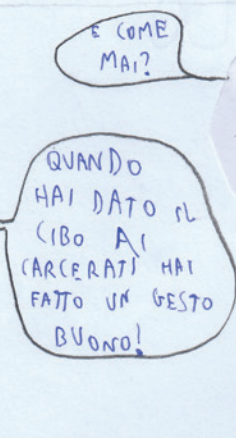 E COME
MAI?
QUANDO
HAI DATO IL
CIBO AI
CARCERATI HAI
FATTO UN GESTO
BUONO!